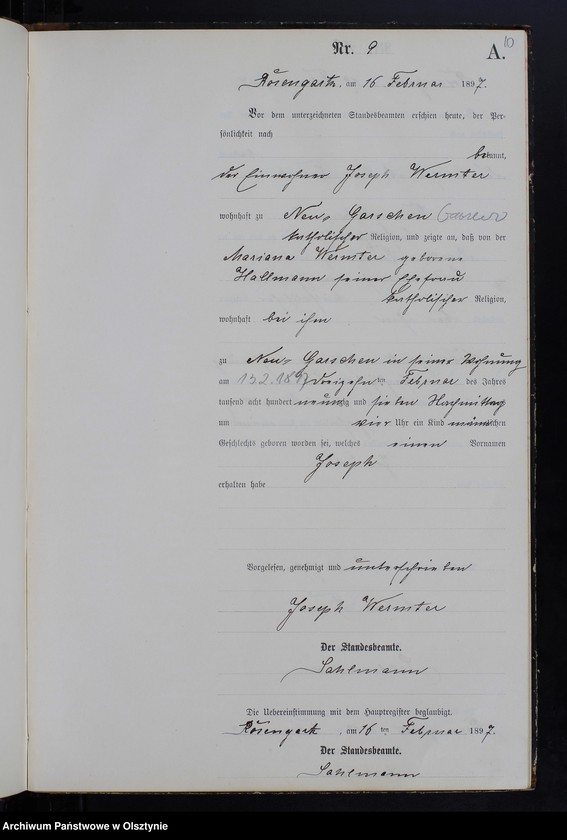 10
Nr. 9 A.
Rosengarth, am 16 Februar 1897.
Vor dem unterzeichneten Standesbeamten erschien heute, der Per-
sönlichkeit nach
bekannt,
der Einwohner Joseph Wermter
wohnhaft zu Neu- Garschen
katholischer Religion, und zeigte an, daß von der
Mariana Wermter geborene
Hallmann seiner Ehefrau
katholischer Religion,
wohnhaft bei ihm
zu Neu- Garschen in seiner Wohnung
am 13.2.1897 dreizehn ten Februar des Jahres
tausend acht hundert neunzig und sieben Nachmittag
um vier Uhr ein Kind männlichen
Geschlechts geboren worden sei, welches einen Vornamen
Joseph
erhalten habe
Vorgelesen, genehmigt und unterschrieben
Joseph Wermter
Der Standesbeamte.
Sahlmann
Die Uebereinstimmung mit dem Hauptregister beglaubigt.
Rosengarth, am 16 ten Februar 1897.
Der Standesbeamte.
Sahlmann
Archiwum Państwowe w Olsztynie